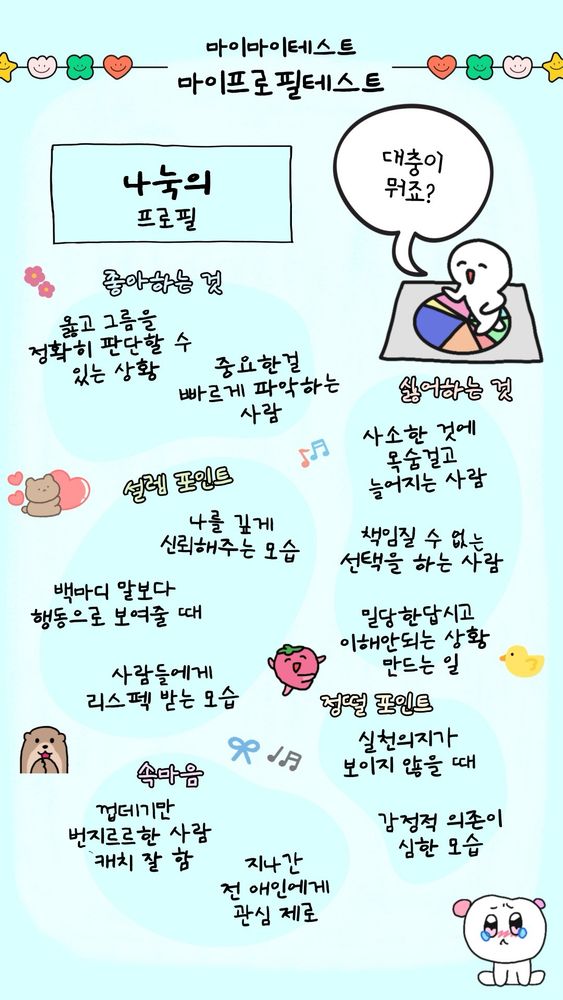 마이마이테스트
마이프로필테스트
나눅의
프로필
대충이
뭐죠?
좋아하는 것
옳고 그름을
정확히 판단할 수
있는 상황
중요한걸
빠르게 파악하는
사람
싫어하는 것
사소한 것에
목숨걸고
늘어지는 사람
책임질 수 없는
선택을 하는 사람
밀당한답시고
이해안되는 상황
만드는 일
설렘 포인트
나를 깊게
신뢰해주는 모습
백마디 말보다
행동으로 보여줄 때
사람들에게
리스펙 받는 모습
정떨 포인트
실천의지가
보이지 않을 때
감정적 의존이
심한 모습
속마음
껍데기만
번지르르한 사람
캐치 잘 함
지나간
전 애인에게
관심 제로